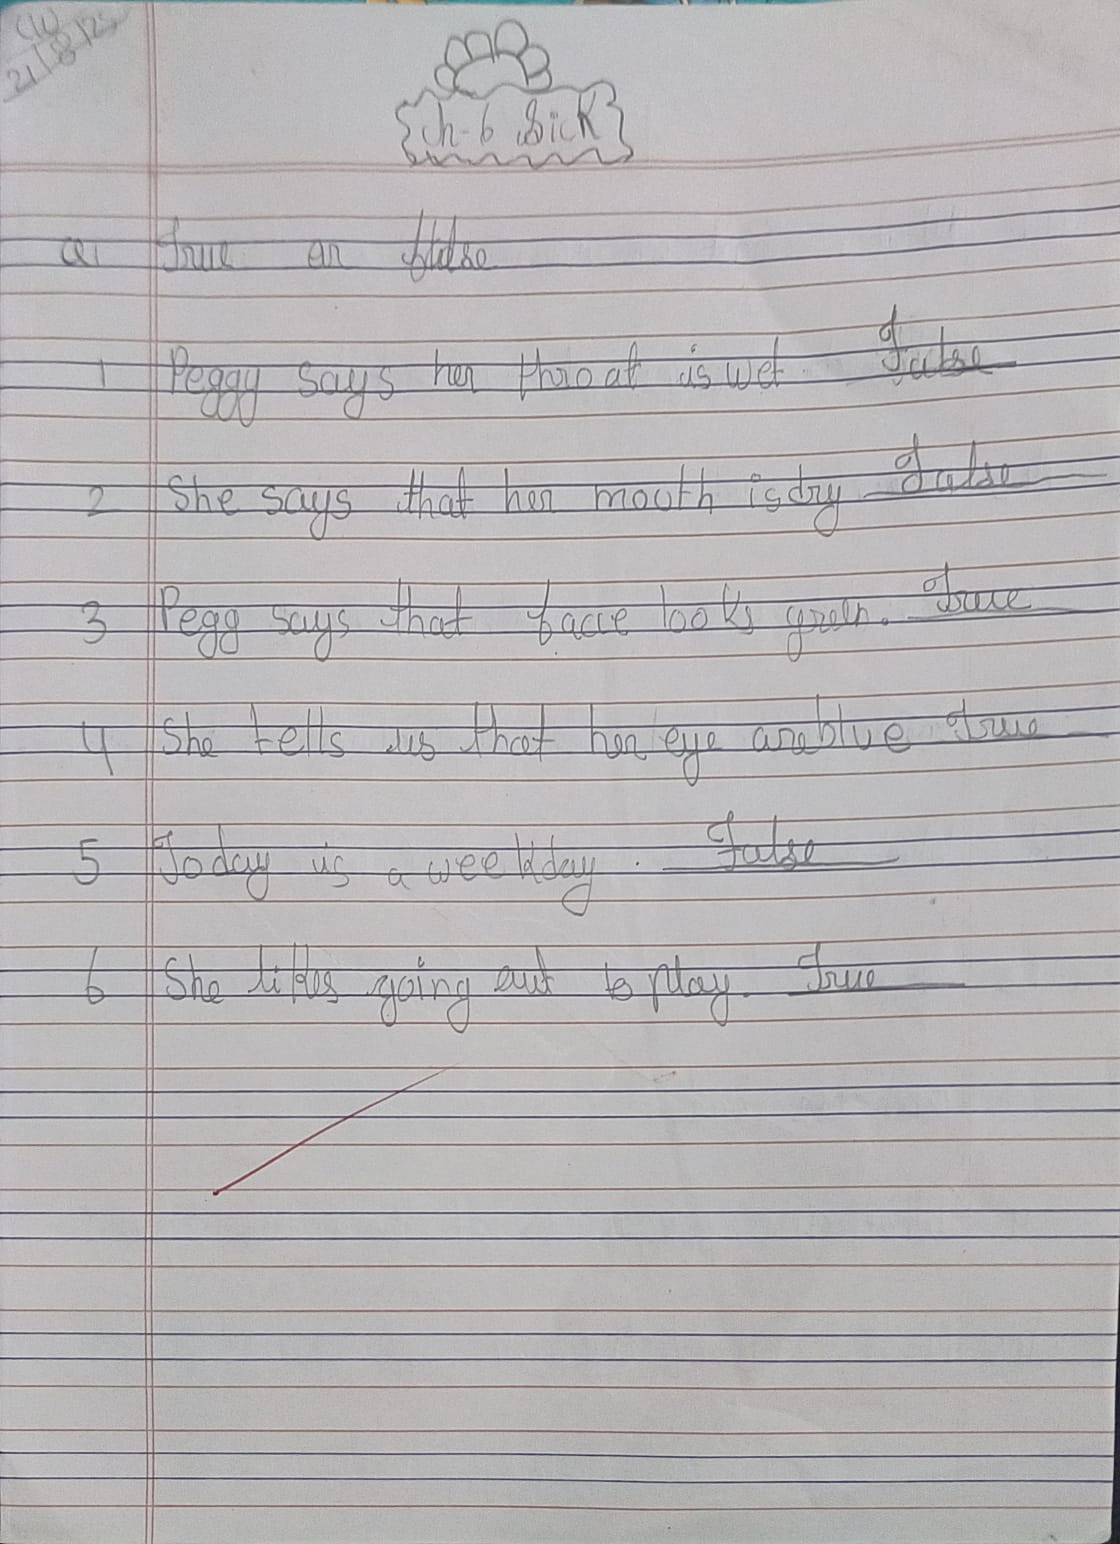 CW
21/8/25
Ch-6 Sick
Q1 True or false
1 Peggy says her throat is wet. False
2 She says that her mouth is dry False
3 Pegg says that facce looks green. True
4 She tells us that her eye are blue True
5 Today is a weekday. False
6 She likes going out to play. True